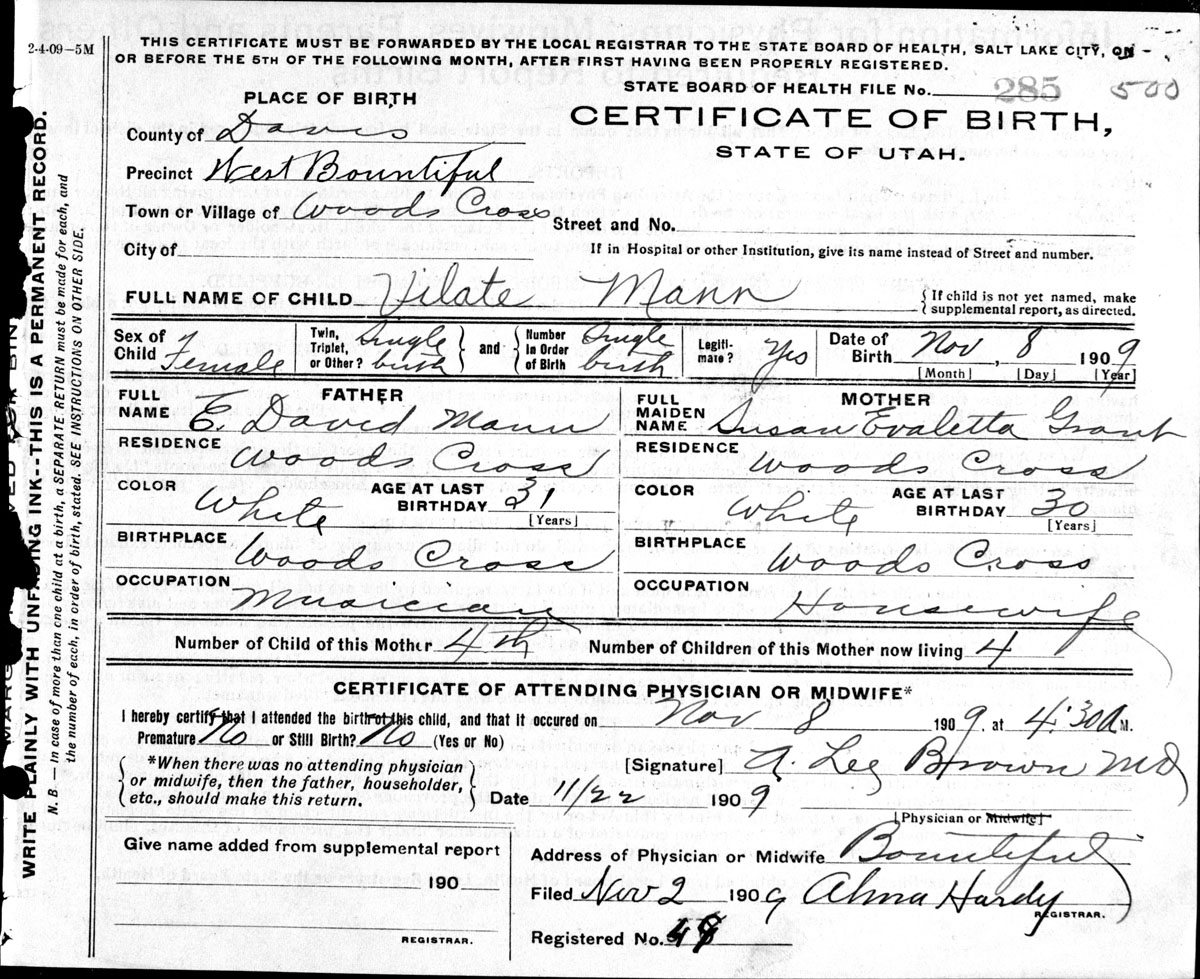 2-4-09-5M
THIS CERTIFICATE MUST BE FORWARDED BY THE LOCAL REGISTRAR TO THE STATE BOARD OF HEALTH, SALT LAKE CITY, ON
OR BEFORE THE 5TH OF THE FOLLOWING MONTH, AFTER FIRST HAVING BEEN PROPERLY REGISTERED.
STATE BOARD OF HEALTH FILE No. 285 500
PLACE OF BIRTH
CERTIFICATE OF BIRTH,
STATE OF UTAH.
County of Davis
Precinct West Bountiful
Town or Village of Woods Cross
Street and No.
City of
If in Hospital or other Institution, give its name instead of Street and number.
FULL NAME OF CHILD Vilate Mann
{If child is not yet named, make
supplemental report, as directed.
Sex of Child Female
Twin, Triplet, or Other? Single birth
and
Number in Order of Birth Single birth
Legitimate? Yes
Date of Birth Nov, 8 1909
[Month] [Day] [Year]
FATHER
FULL NAME E. David Mann
RESIDENCE Woods Cross
COLOR White
AGE AT LAST BIRTHDAY 31
[Years]
BIRTHPLACE Woods Cross
OCCUPATION Musician
MOTHER
FULL MAIDEN NAME Susan Evaletta Grant
RESIDENCE Woods Cross
COLOR White
AGE AT LAST BIRTHDAY 30
[Years]
BIRTHPLACE Woods Cross
OCCUPATION Housewife
Number of Child of this Mother 4th
Number of Children of this Mother now living 4
CERTIFICATE OF ATTENDING PHYSICIAN OR MIDWIFE*
I hereby certify that I attended the birth of this child, and that it occured on Nov 8 1909, at 4:30a M.
Premature No or Still Birth? No (Yes or No)
*When there was no attending physician
or midwife, then the father, householder,
etc., should make this return.
[Signature] A. Lee Brown MD
Date 11/22 1909
[Physician or Midwife]
Give name added from supplemental report
190
REGISTRAR.
Address of Physician or Midwife Bountiful
Filed Nov 2 1909 Alma Hardy
REGISTRAR.
Registered No. 48
WRITE PLAINLY WITH UNFADING INK--THIS IS A PERMANENT RECORD.
N. B.—In case of more than one child at a birth, a SEPARATE RETURN must be made for each, and
the number of each, in order of birth, stated. SEE INSTRUCTIONS ON OTHER SIDE.